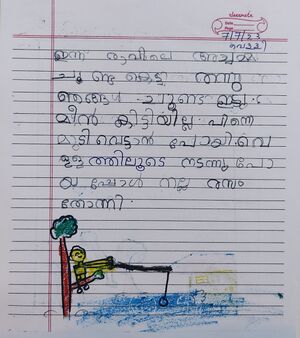 classmate
Date
Page
7/7/23
വെള്ളി
ഇന്ന് രാവിലെ അച്ഛൻ
ചൂണ്ട കെട്ടി തന്നു
ഞങ്ങൾ ചൂണ്ട ഇട്ടു.
മീൻ കിട്ടിയില്ല. പിന്നെ
മുടിവെട്ടാൻ പോയി. വെ
ള്ളത്തിലൂടെ നടന്നു പോ
യപ്പോൾ നല്ല രസം
തോന്നി.